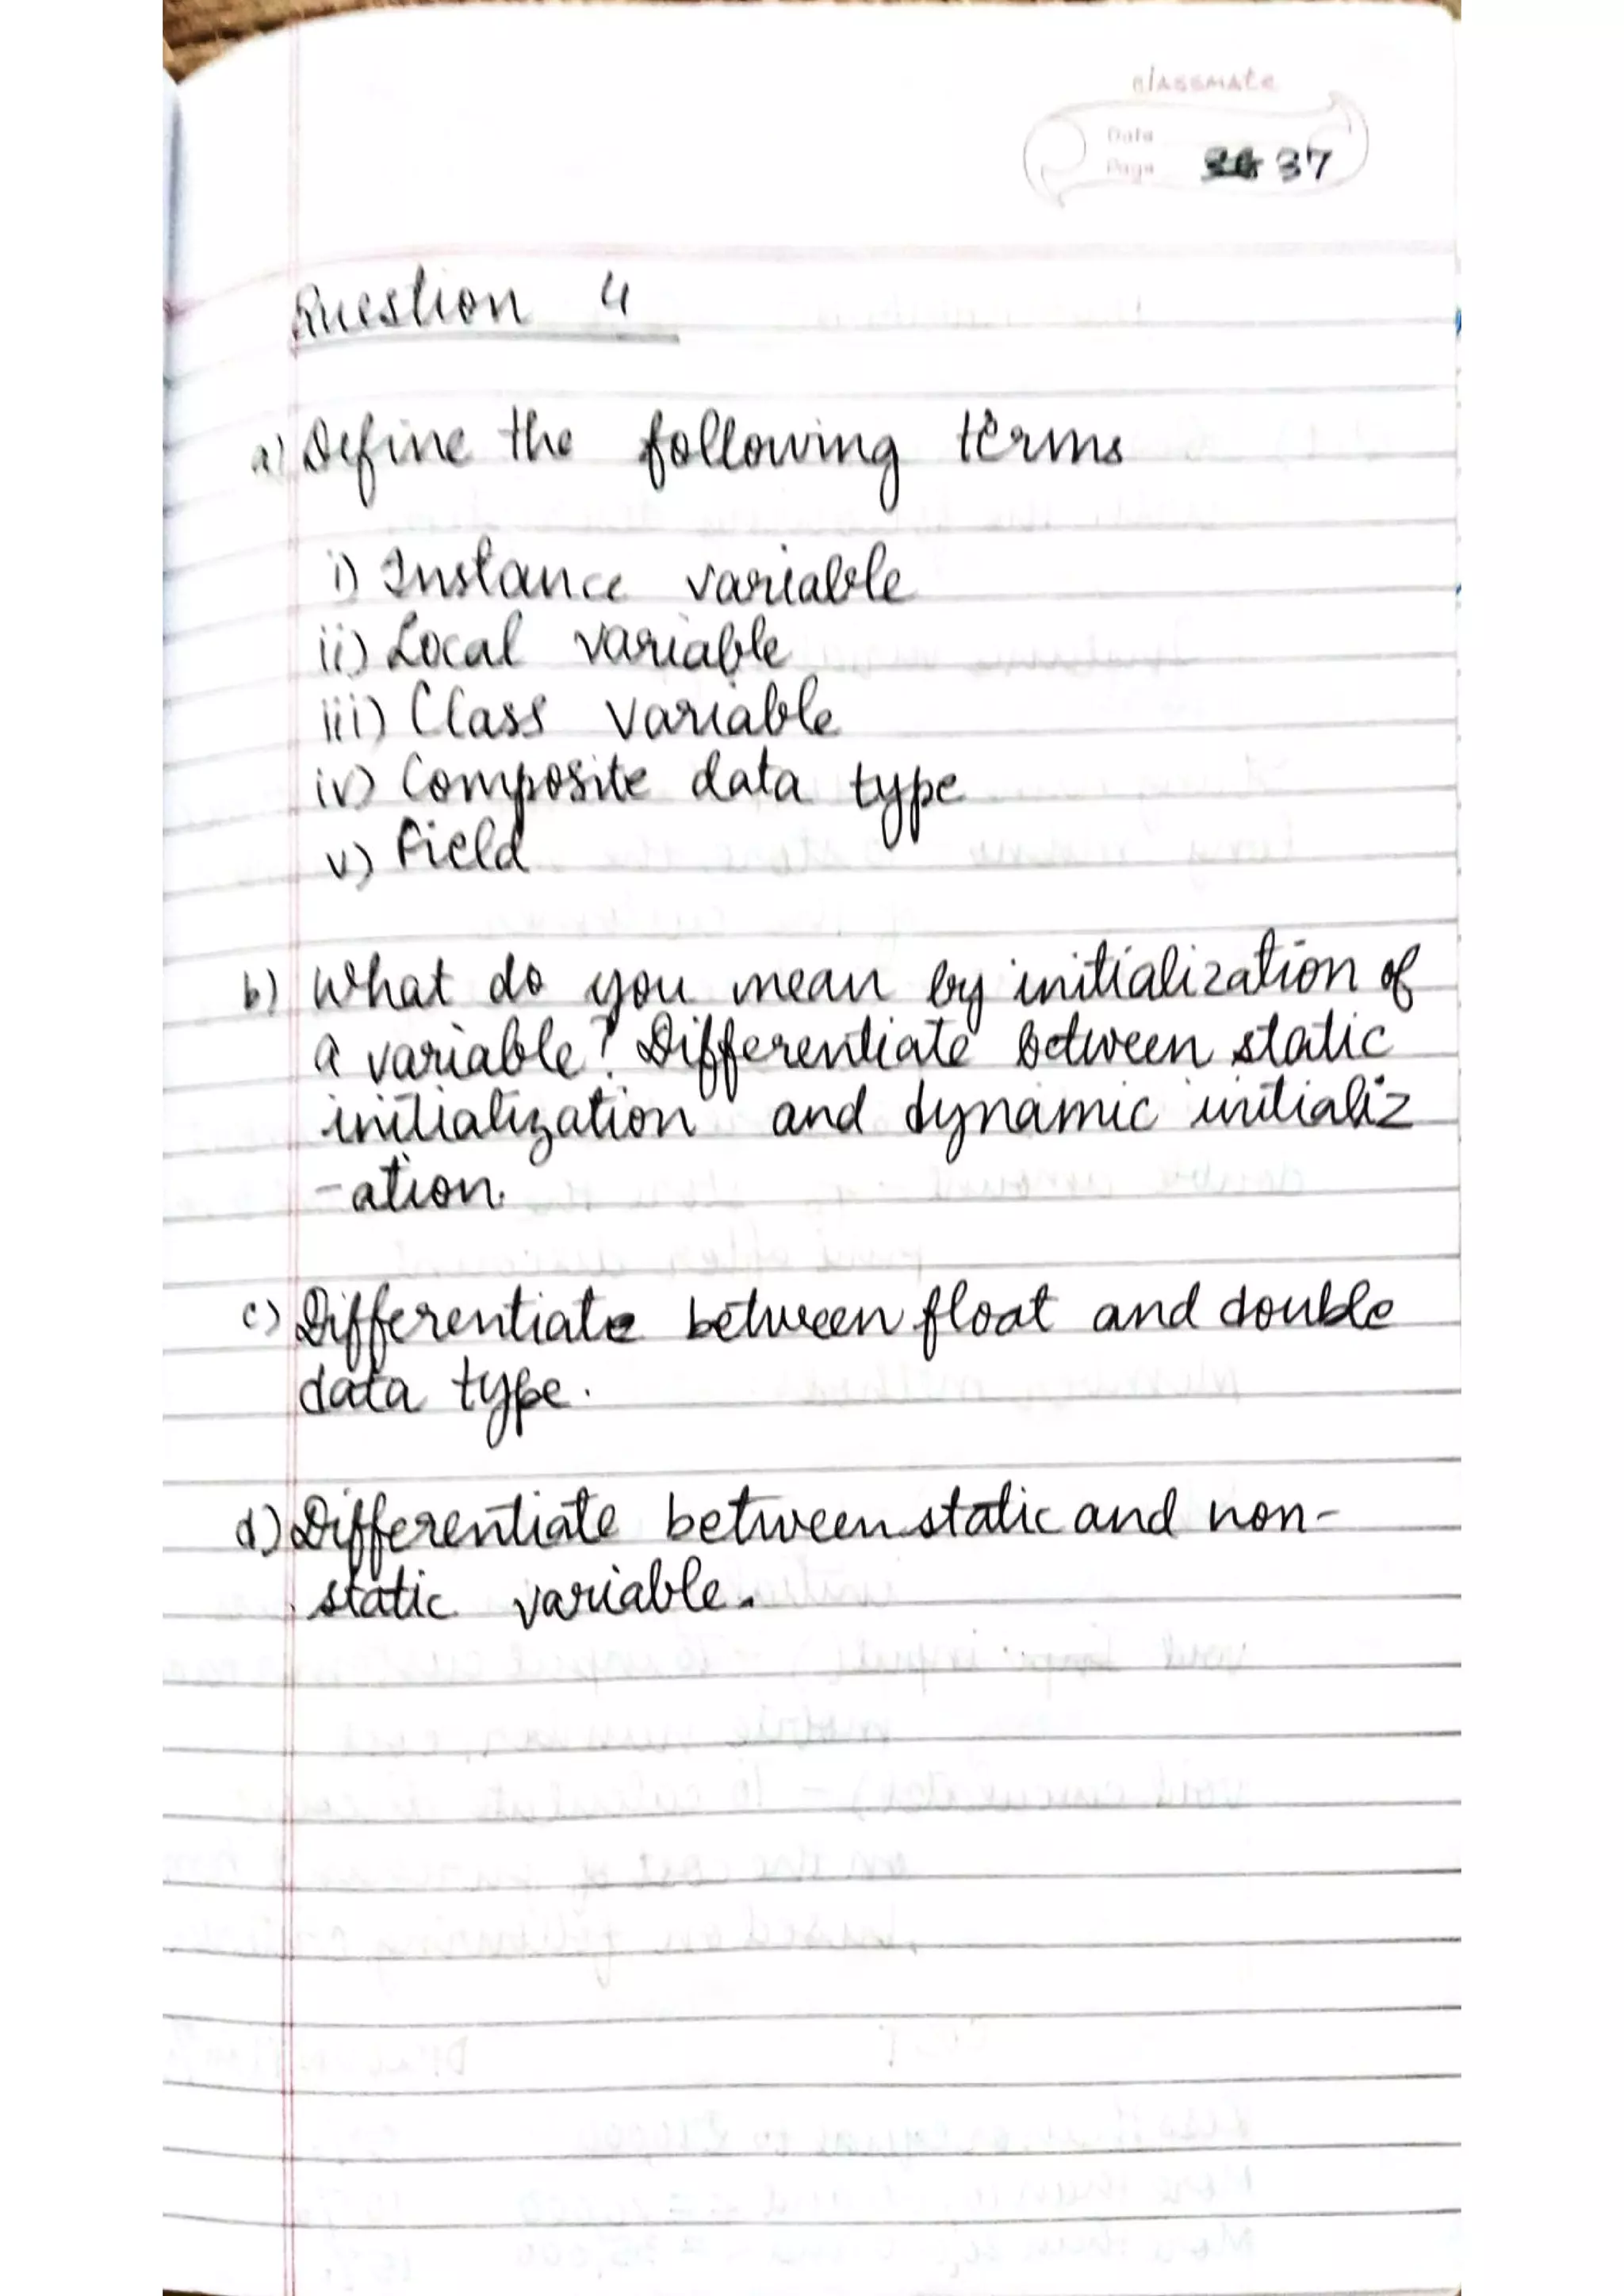 classmate
Date
Page 37
Question 4
a) Define the following terms
i) Instance variable
ii) Local variable
iii) Class variable
iv) Composite data type
v) Field
b) What do you mean by initialization of
a variable? Differentiate between static
initialization and dynamic initializ
-ation.
c) Differentiate between float and double
data type.
d) Differentiate between static and non-
static variable.